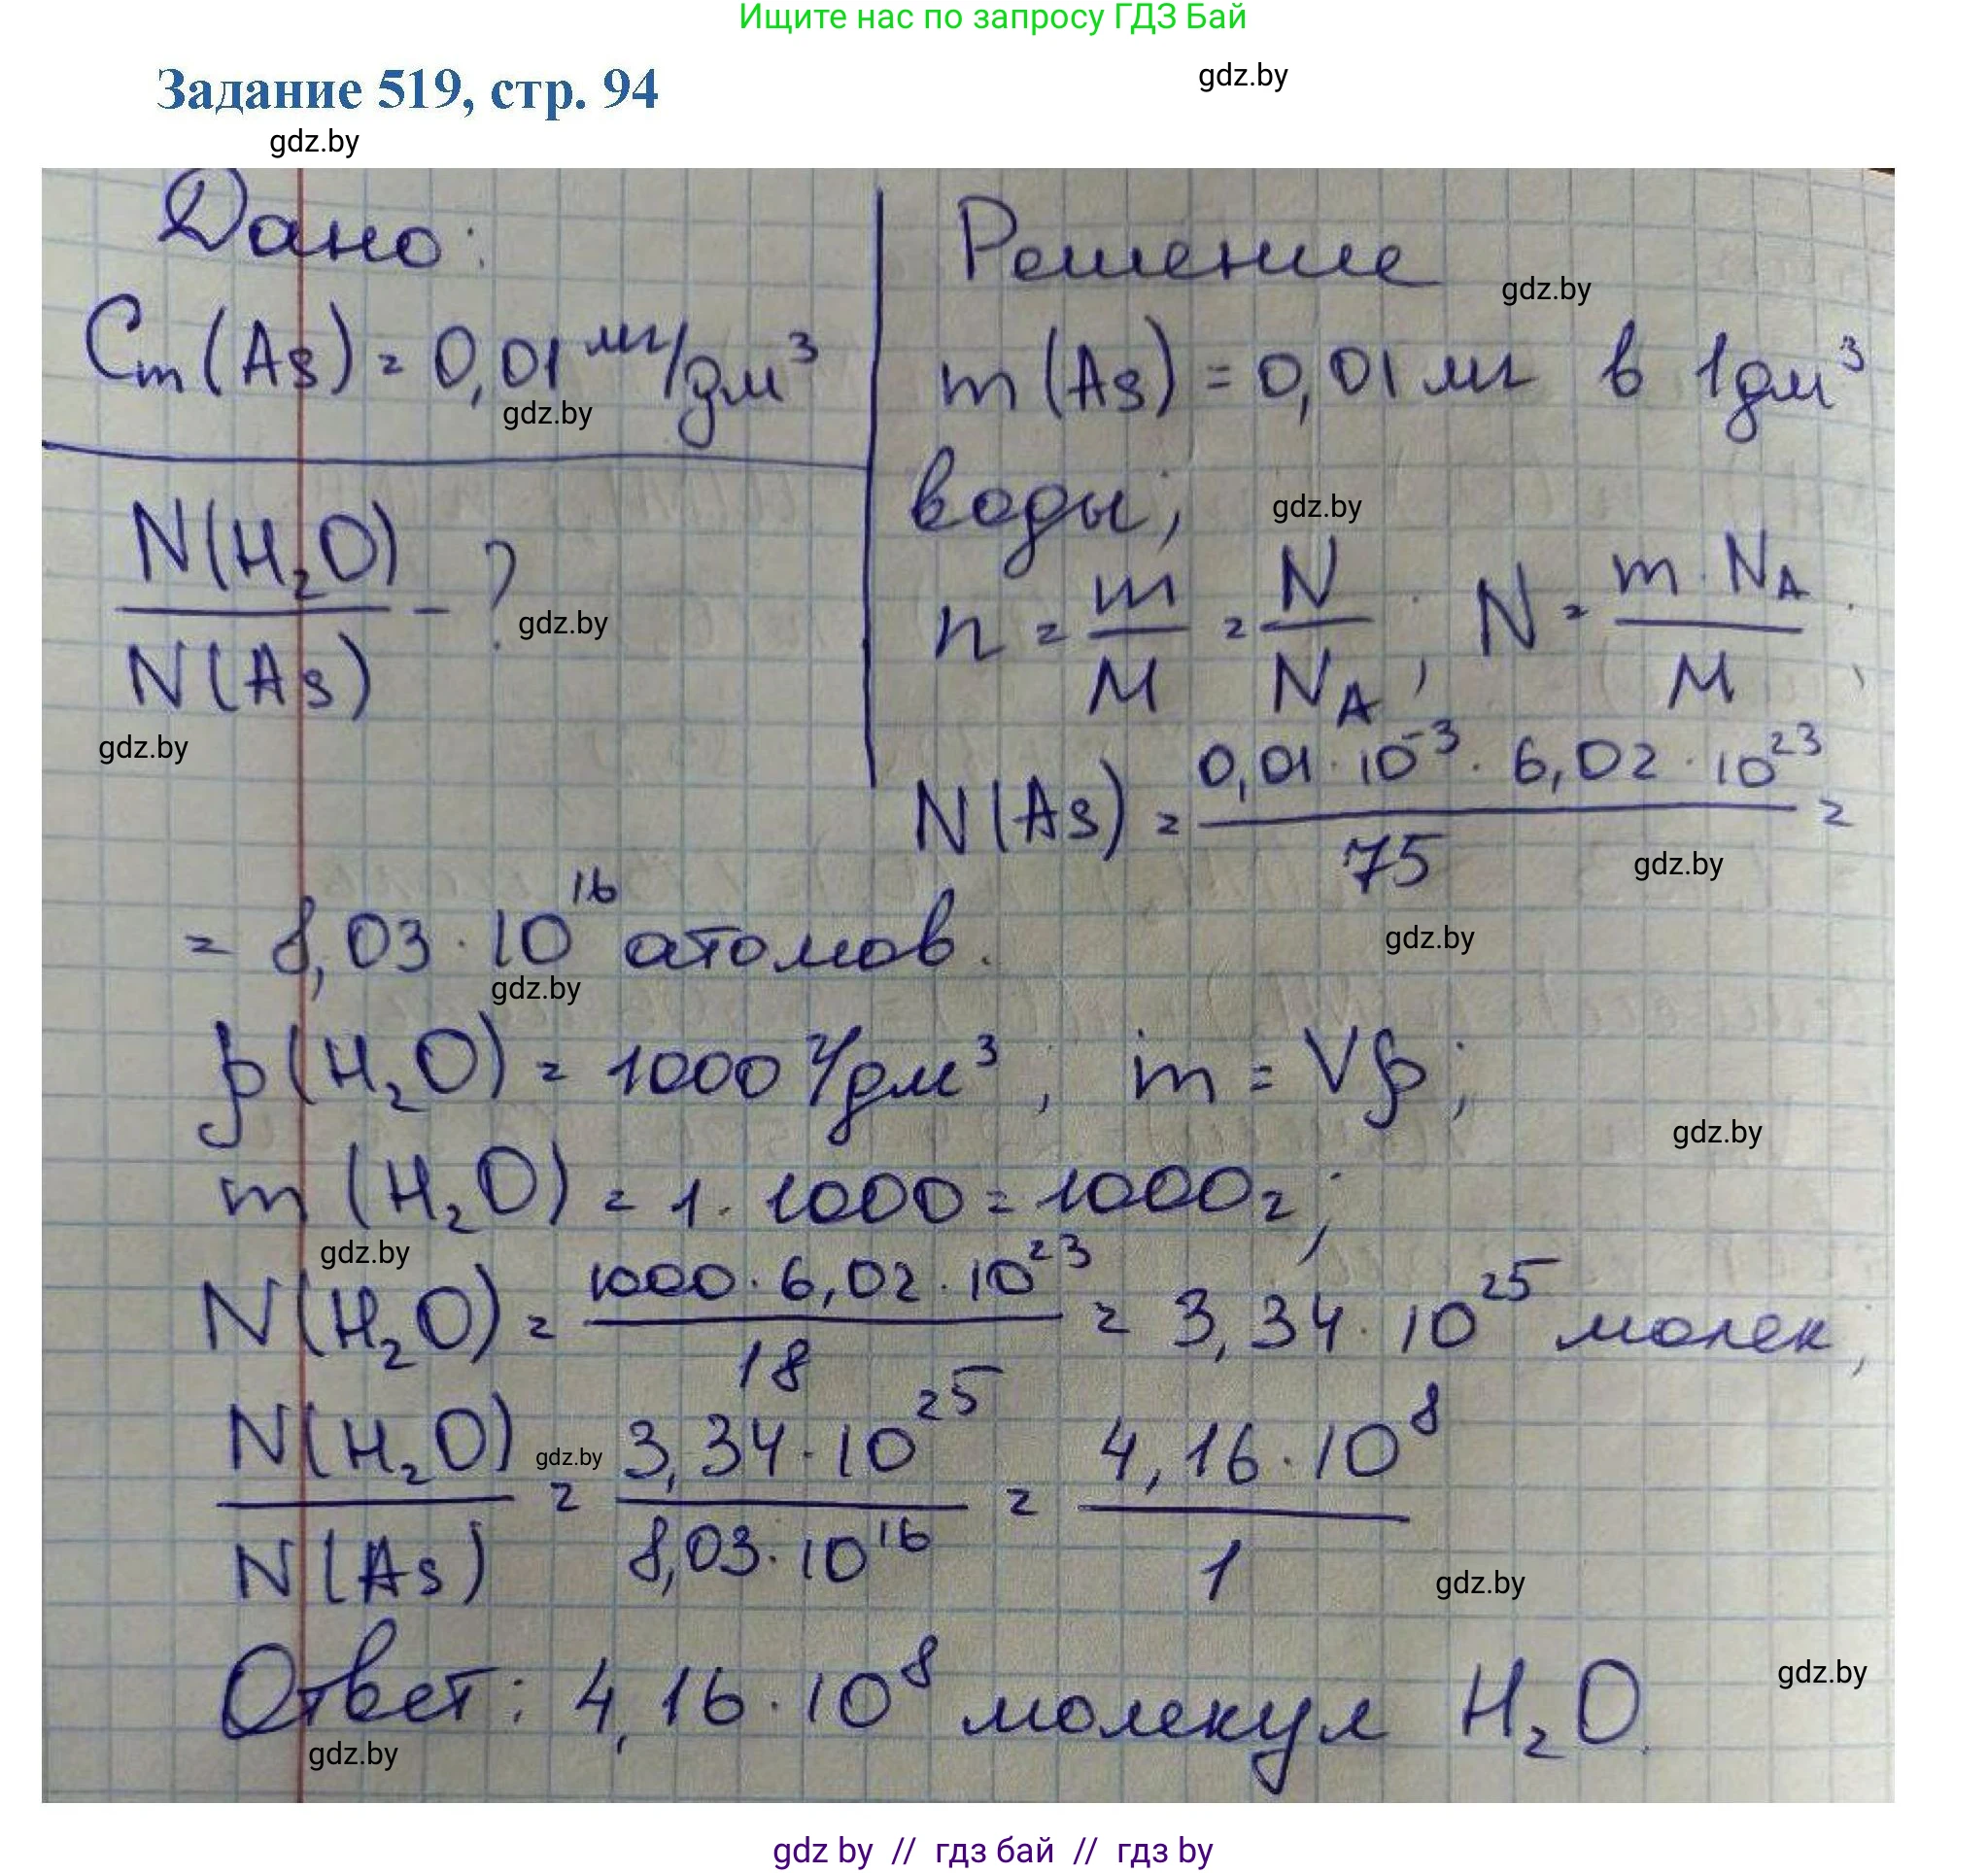 Ищите нас по запросу ГДЗ Бай
Задание 519, стр. 94
gdz.by
gdz.by
Дано:
Cm(As) = 0,01 мг/дм³
gdz.by
N(H₂O)
/ N(As) - ?
gdz.by
gdz.by
Решение
gdz.by
m(As) = 0,01 мг в 1дм³
воды;
gdz.by
n = m/M = N/N_A; N = m·N_A/M;
N(As) = 0,01·10⁻³·6,02·10²³ / 75 =
gdz.by
gdz.by
= 8,03·10¹⁶ атомов.
gdz.by
ρ(H₂O) = 1000 г/дм³, m = Vρ;
gdz.by
m(H₂O) = 1·1000 = 1000г;
gdz.by
N(H₂O) = 1000·6,02·10²³ / 18 = 3,34·10²⁵ молек,
N(H₂O) / N(As) = 3,34·10²⁵ / 8,03·10¹⁶ = 4,16·10⁸ / 1
gdz.by
gdz.by
Ответ: 4,16·10⁸ молекул H₂O.
gdz.by
gdz.by
gdz by // гдз бай // гдз by